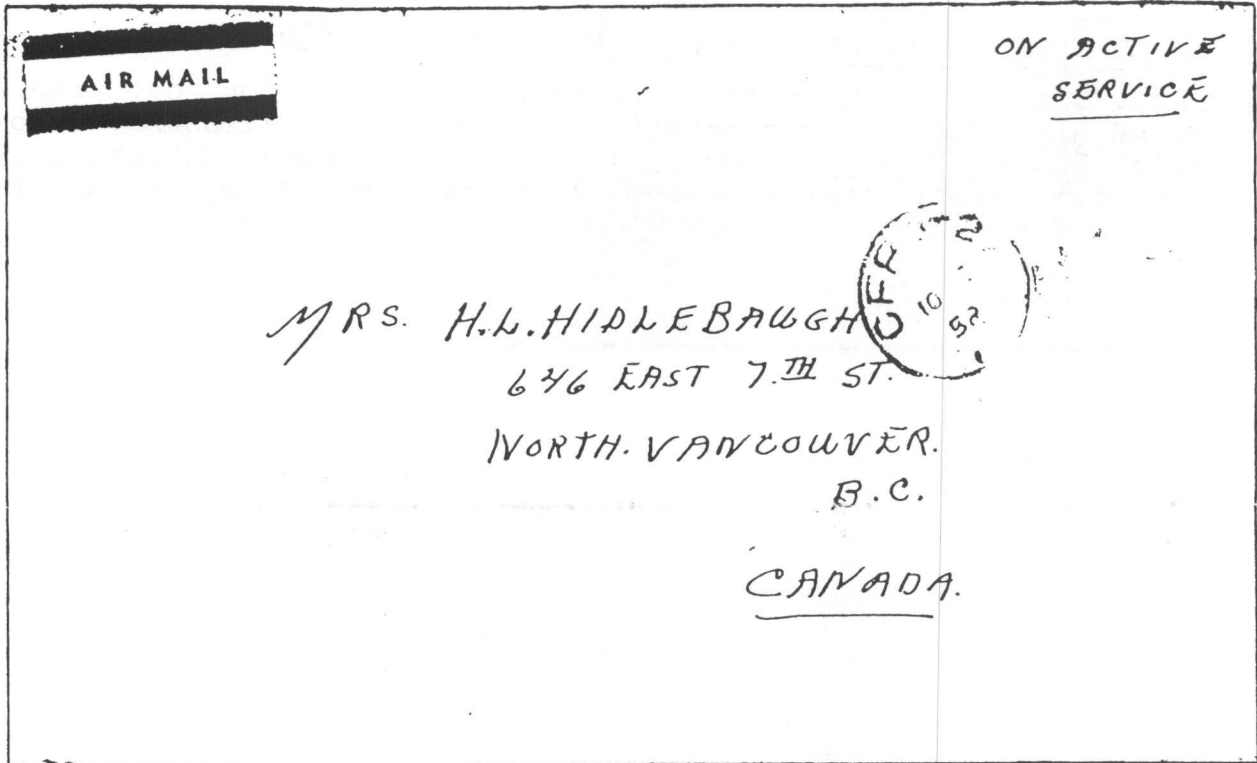 AIR MAIL
ON ACTIVE
SERVICE
CFP
10
52
MRS. H.L. HIDLEBAUGH
646 EAST 7.TH ST.
NORTH. VANCOUVER.
B.C.
CANADA.